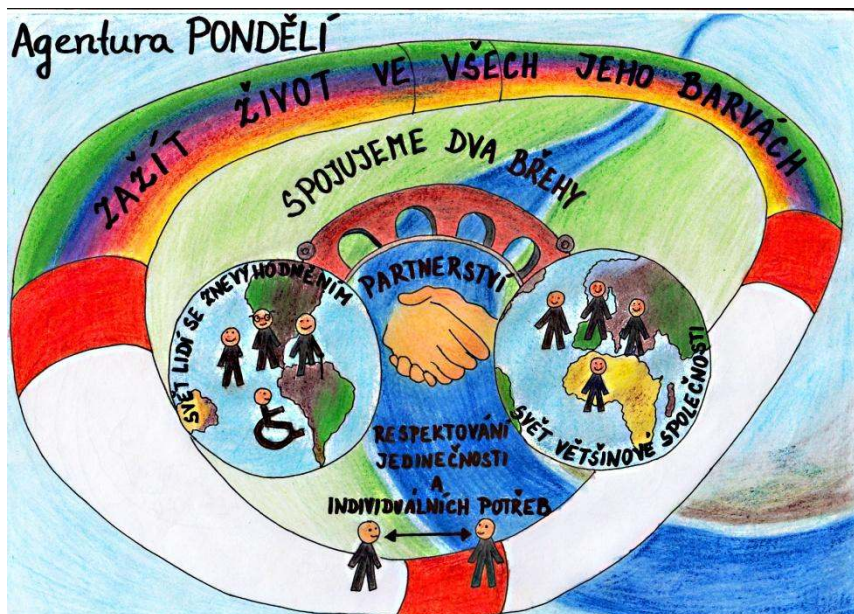 Agentura PONDĚLÍ
ZAŽÍT ŽIVOT VE VŠECH JEHO BARVÁCH
SPOJUJEME DVA BŘEHY
PARTNERSTVÍ
SVĚT LIDÍ SE ZNEVÝHODNĚNÍM
SVĚT VĚTŠINOVÉ SPOLEČNOSTI
RESPEKTOVÁNÍ
JEDINEČNOSTI
A
INDIVIDUÁLNÍCH POTŘEB